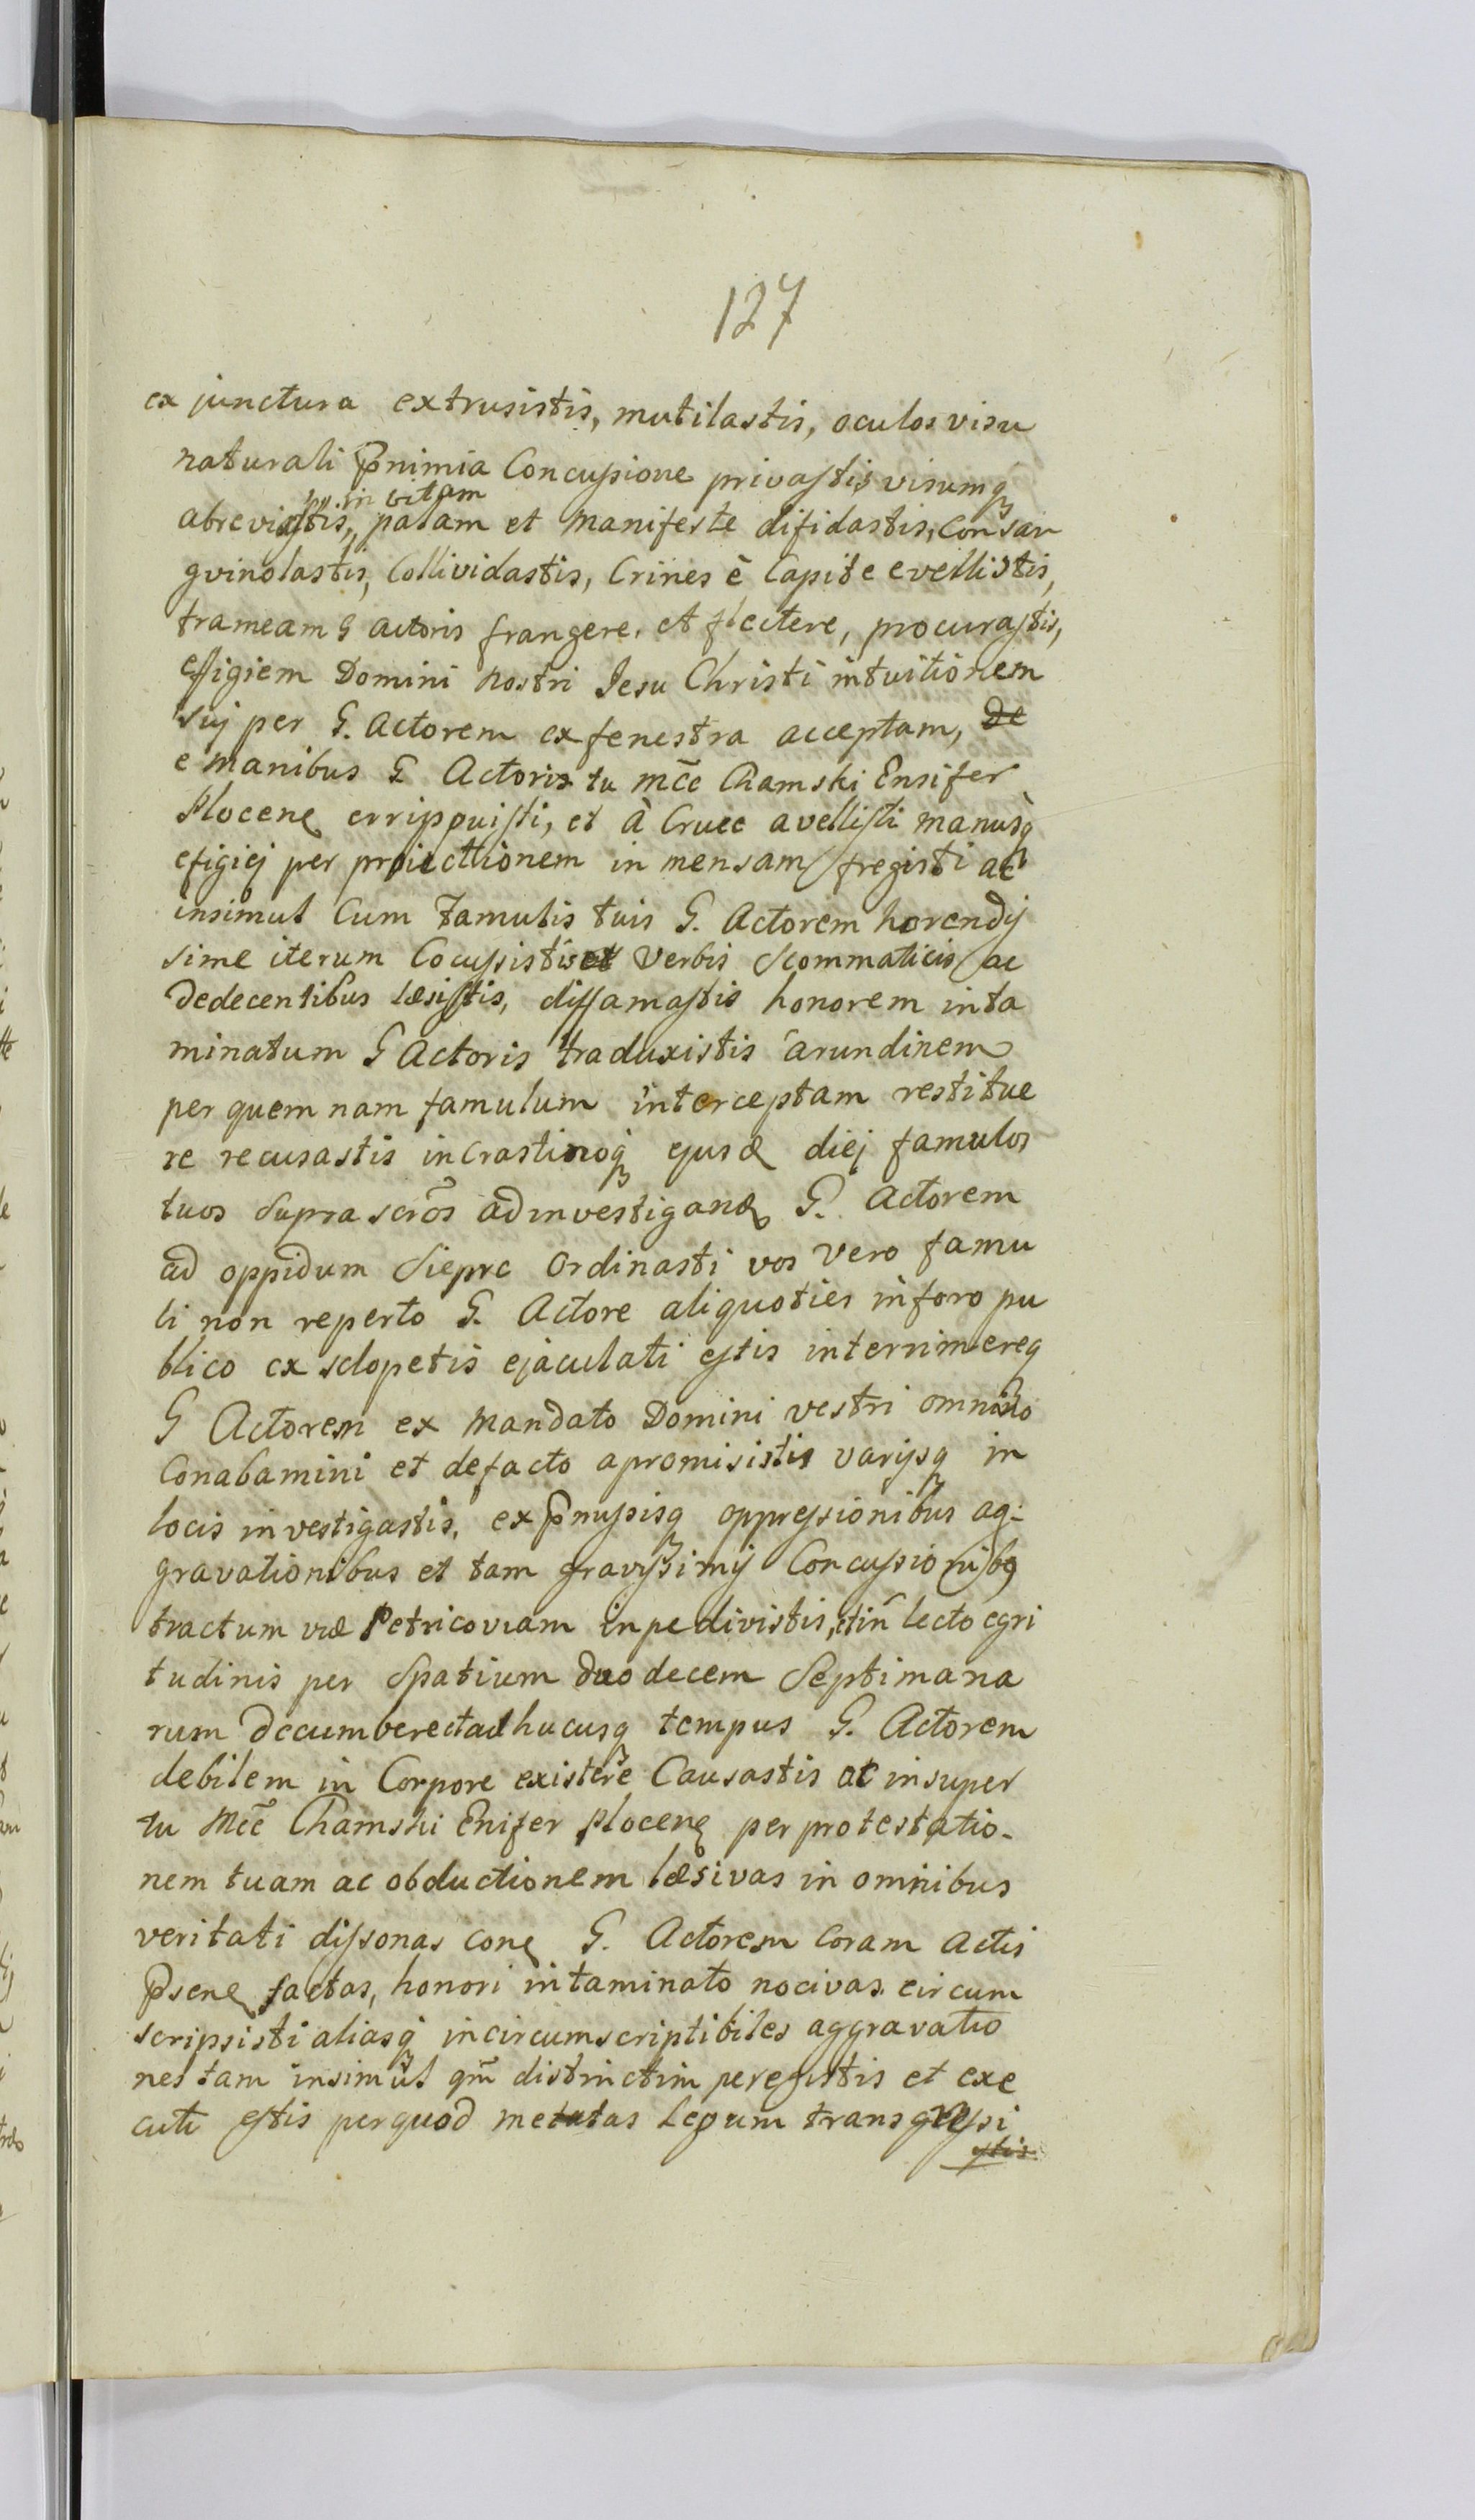 127
ex junctura extrusistis, mutilastis, oculos visu
naturali p̱nimia Concussione privastis visumq
in vitam
abreviastis, palam et manifeste difidastis, Consan
gvinolastis, Collividastis, Crines è Capite evellistis,
frameam G actoris frangere, et flectere, procurastis,
effigiem Domini Nostri Jesu Christi intuitionem
suj per G. Actorem ex fenestra acceptam, De
e manibus G Actoris tu mc̃e Chamski Ensifer
Plocenę errippuisti, et à Cruce avellisti manusq̀
efigiej per projecttionem in mensam fregisti ac
insimul Cum Famulis tuis G. Actorem horendÿ
sime iterum Cocussistis et Verbis Scommaticis ac
Dedecentibus læsistis, diffamastis honorem inta
minatum G Actoris traduxistis arundinem
per quem nam famulum interceptam restitue
re recusastis in Crastinoq̀ ejusd diej famulos
tuos Supra scrõs ad investigand G. Actorem
ad oppidum Sieprc Ordinasti vos Vero famu
li non reperto G. Actore aliquoties in foro pu
blico ex sclopetis ejaculati estis interrimereq
G Actorem ex Mandato Domini vestri omnino
Conabamini et defacto apromisistis varijsq in
locis investigastis, ex p̱missisq oppressionibus ag:
gravationibus et tam gravissimÿ Concussionibq
tractum viæ Petricoviam inpedivistis, et in lecto egri
tudinis per Spatium duodecem Septimana
rum Decumbere et ad hucusq tempus G. Actorem
debilem in Corpore existere Causastis at insuper
tu Mc̃e Chamski Enifer Plocenę per protestatio-
nem tuam ac obductionem læsivas in omnibus
veritati dissonas Conę G. Actorem Coram Actis
p̱senę factas, honori intaminato nocivas. circum
scripsisti aliasq̀ incircumscriptibiles aggravatio
nes tam insimul qm̃ distinctim peregistis et exe
cuti estis per quod metatas Legum transgressi
estis